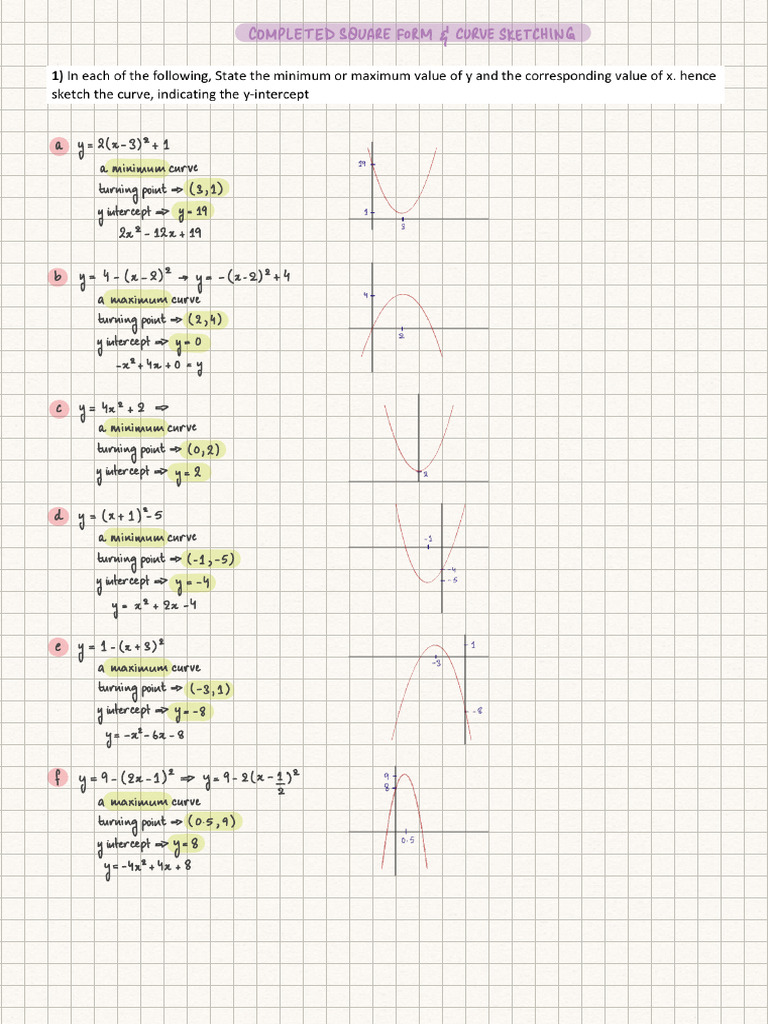 COMPLETED SQUARE FORM & CURVE SKETCHING
1) In each of the following, State the minimum or maximum value of y and the corresponding value of x. hence
sketch the curve, indicating the y-intercept
a y = 2(x-3)² + 1
a minimum curve
turning point ⇒ (3,1)
y intercept ⇒ y = 19
2x² - 12x + 19
19
1
3
b y = 4 - (x-2)² → y = -(x-2)² + 4
a maximum curve
turning point ⇒ (2,4)
y intercept ⇒ y = 0
-x² + 4x + 0 = y
4
2
c y = 4x² + 2 ⇒
a minimum curve
turning point ⇒ (0,2)
y intercept ⇒ y = 2
2
d y = (x+1)² - 5
a minimum curve
turning point ⇒ (-1,-5)
y intercept ⇒ y = -4
y = x² + 2x - 4
-1
-4
-5
e y = 1 - (x+3)²
a maximum curve
turning point ⇒ (-3,1)
y intercept ⇒ y = -8
y = -x² - 6x - 8
1
-3
-8
f y = 9 - (2x-1)² ⇒ y = 9 - 2(x - 1/2)²
a maximum curve
turning point ⇒ (0.5,9)
y intercept ⇒ y = 8
y = -4x² + 4x + 8
9
8
0.5